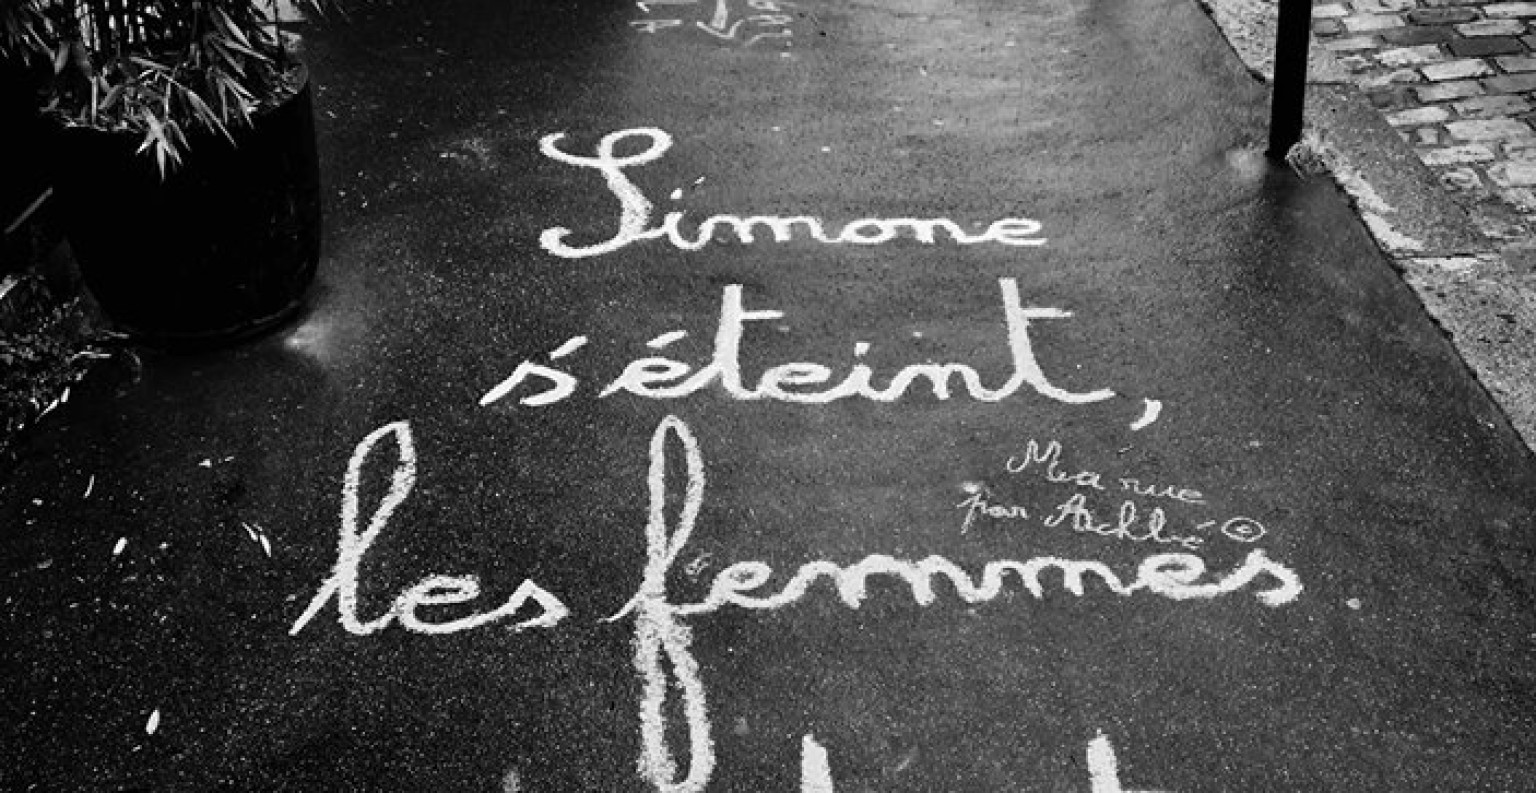 Simone
s'éteint,
les femmes
Ma rue
par Achbé ©